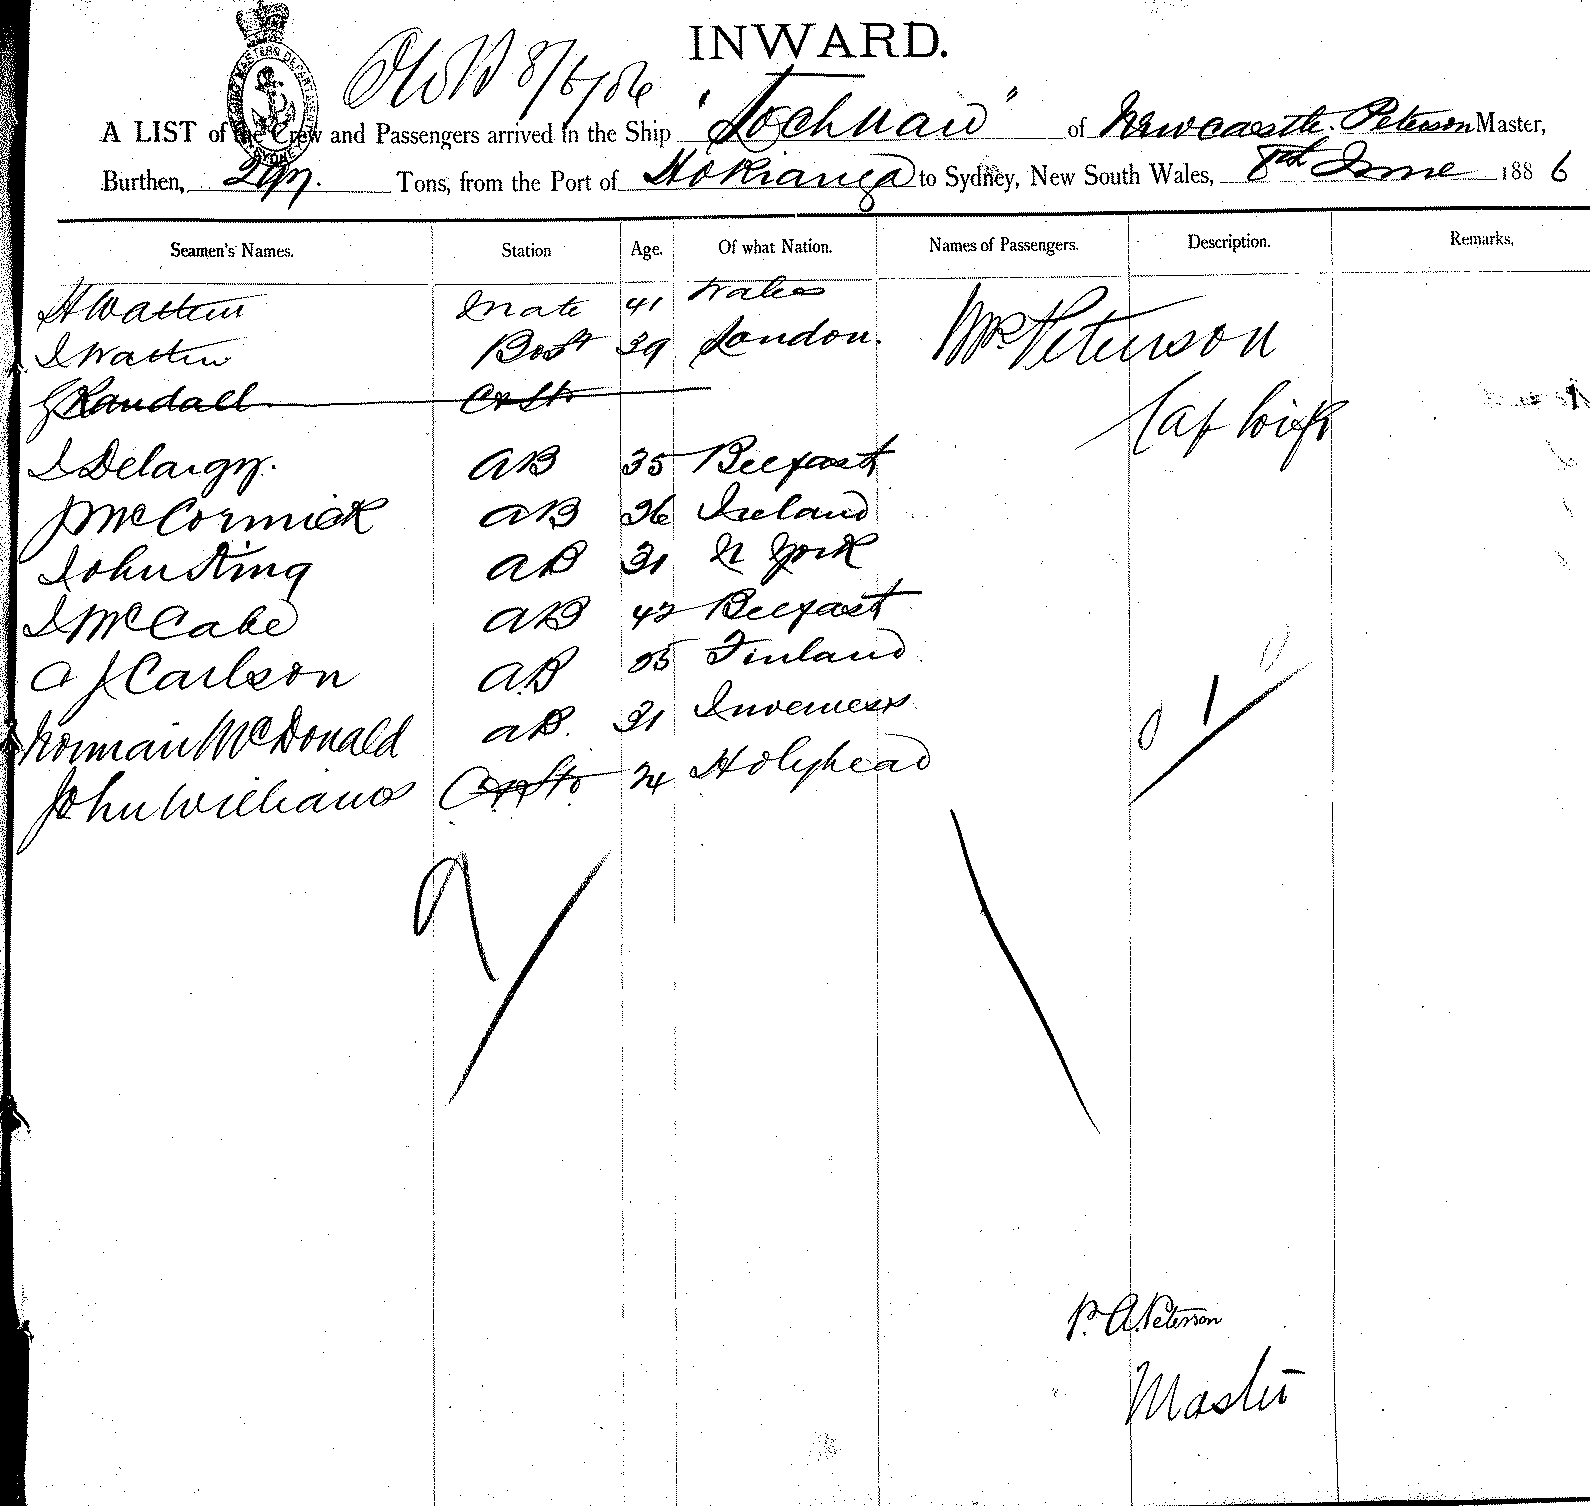 INWARD.
8/6/86
A LIST of the Crew and Passengers arrived in the Ship "Lochnaw" of Newcastle. Peterson Master,
Burthen, 297. Tons, from the Port of Hokianga to Sydney, New South Wales, 8th June 1886
Seamen's Names. Station Age. Of what Nation. Names of Passengers. Description. Remarks.
H Watten Mate 41 Wales Mrs Peterson
J Watten Bost 39 London.
G Randall Ck St Cap Wife
J Delargy. AB 35 Belfast
J McCormick AB 36 Ireland
John King AB 31 N York
J McCabe AB 42 Belfast
A J Carlson AB 35 Finland
Norman McDonald AB. 31 Inverness
John Williams 24 Holyhead
0 1 0
9
P. A. Peterson
Master